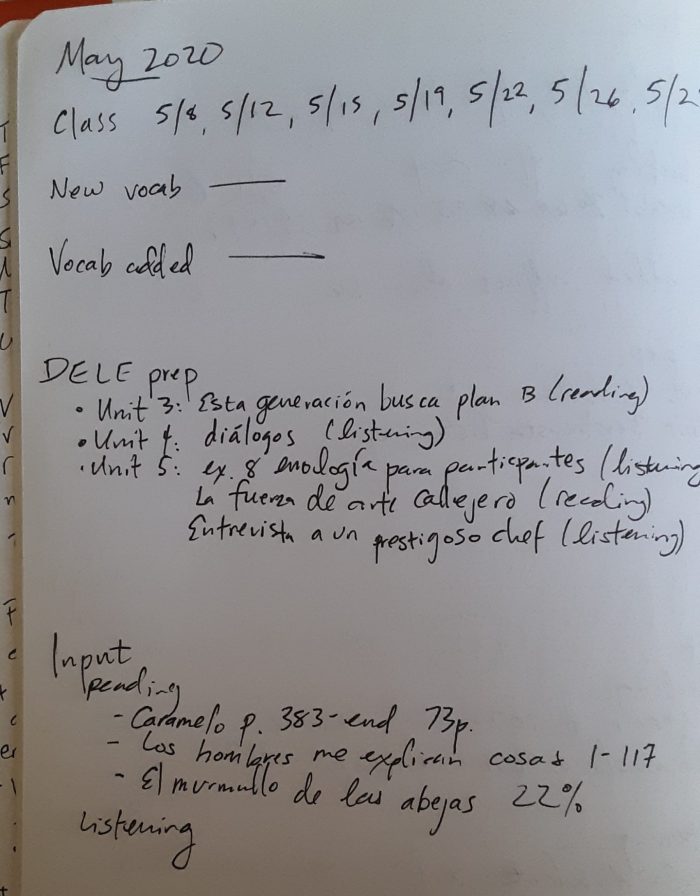 May 2020
Class 5/8, 5/12, 5/15, 5/19, 5/22, 5/26, 5/2
New vocab ——
Vocab added ——
DELE prep
• Unit 3: Esta generación busca plan B (reading)
• Unit 4: diálogos (listening)
• Unit 5: ex. 8 enología para particpantes (listening
La fuerza de arte callejero (reading)
Entrevista a un prestigoso chef (listening)
Input
reading
- Caramelo p. 383-end 73p.
- Los hombres me explican cosas 1-117
- El murmullo de las abejas 22%
Listening